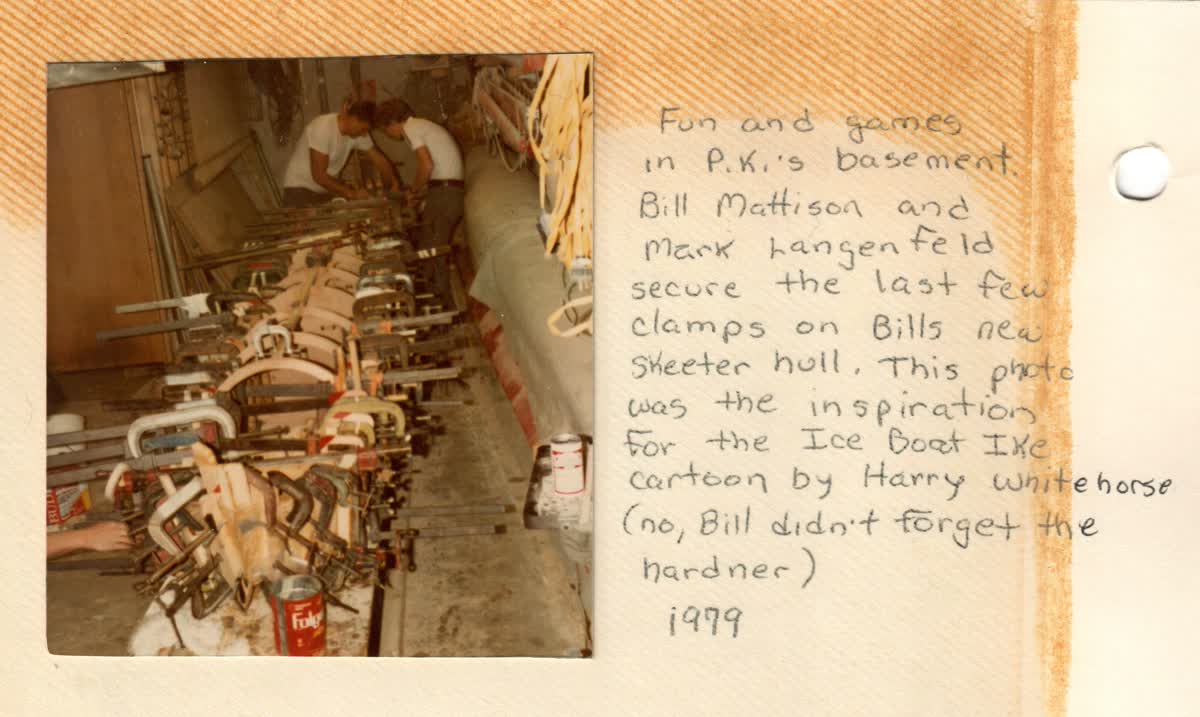 Fun and games
in P.K.'s basement.
Bill Mattison and
Mark Langenfeld
secure the last few
clamps on Bills new
skeeter hull. This photo
was the inspiration
for the Ice Boat Ike
cartoon by Harry Whitehorse
(no, Bill didn't forget the
hardner)
1979
Folge